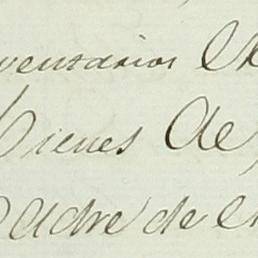 ventarios de
Bienes de
Padre de